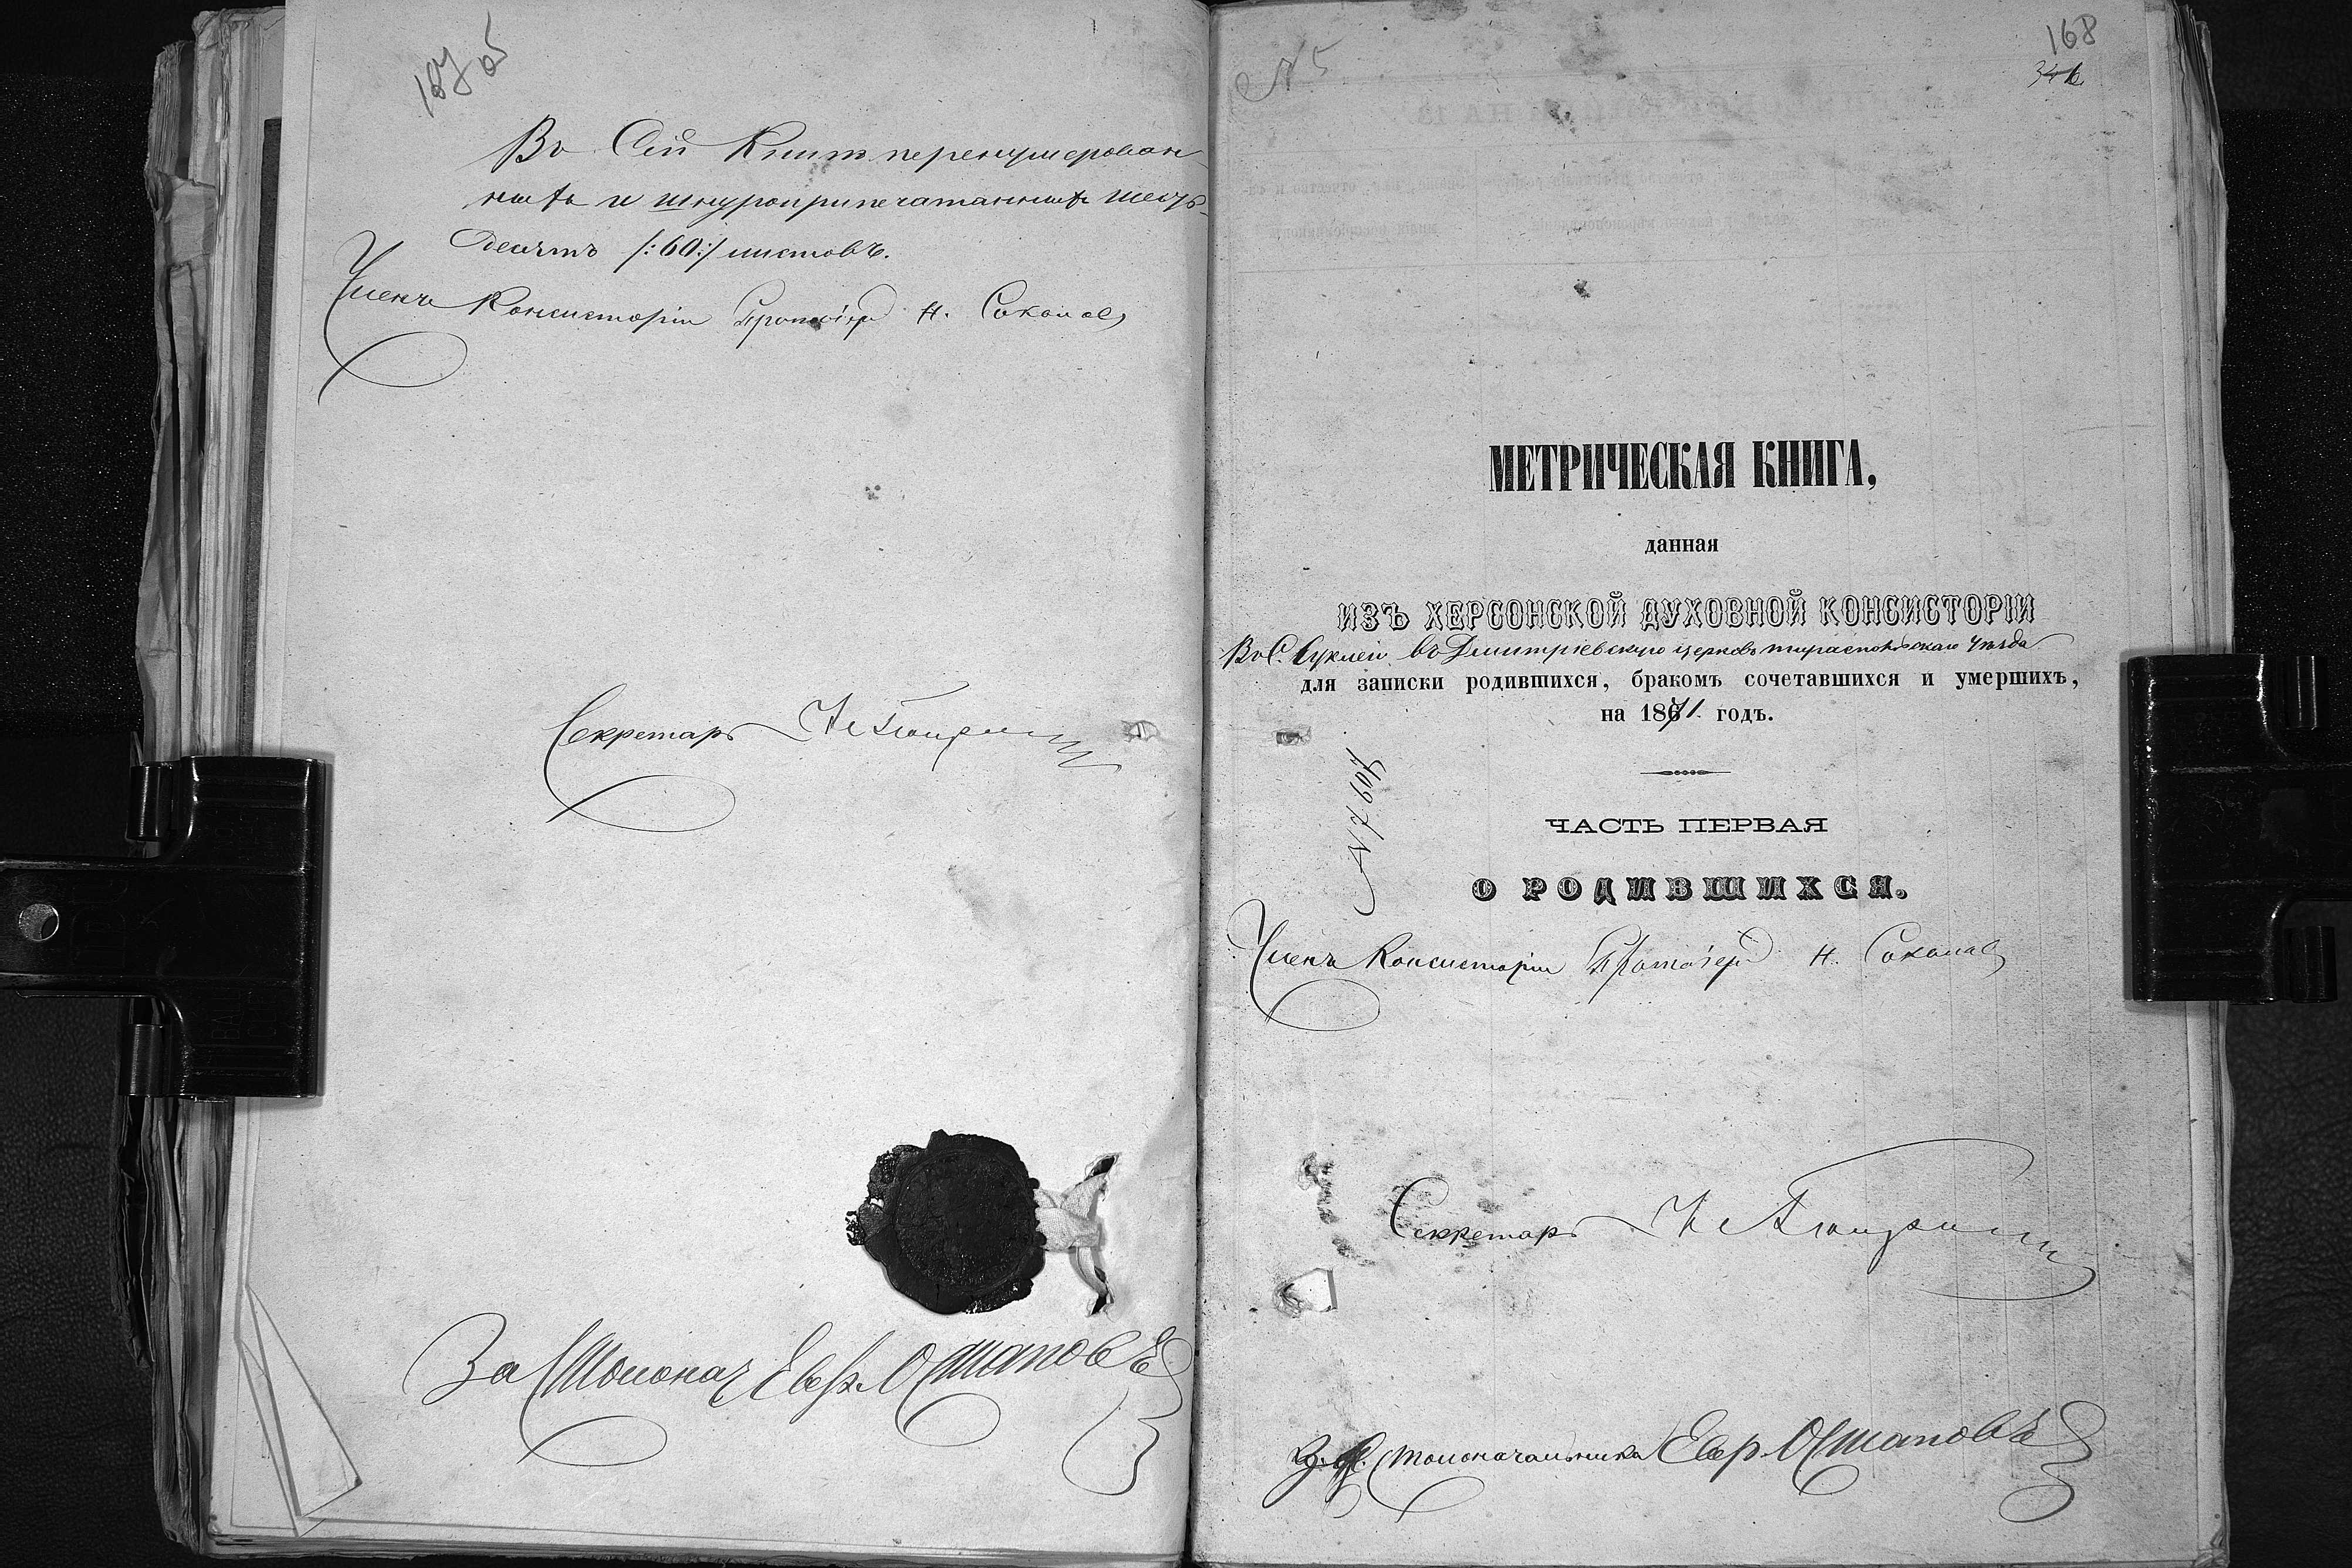 167 об
Въ Сей Книгѣ перенумерован-
ныхъ и шнуроприпечатанныхъ шесть-
десятъ /:60:/ листовъ.
Членъ Консисторіи Протоіерей Н. Соколовъ
Секретарь
За Столонач Евфр. Остаповъ
№ 5
168
346
МЕТРИЧЕСКАЯ КНИГА,
данная
ИЗЪ ХЕРСОНСКОЙ ДУХОВНОЙ КОНСИСТОРІИ
Въ С. Суклеи въ Димитріевскую церковь тираспольскаго уѣзда
для записки родившихся, бракомъ сочетавшихся и умершихъ,
на 1871 годъ.
№ 7607
ЧАСТЬ ПЕРВАЯ
О РОДИВШИХСЯ.
Членъ Консисторіи Протоіерей Н. Соколовъ
Секретарь
Столоначальника Евфр. Остаповъ